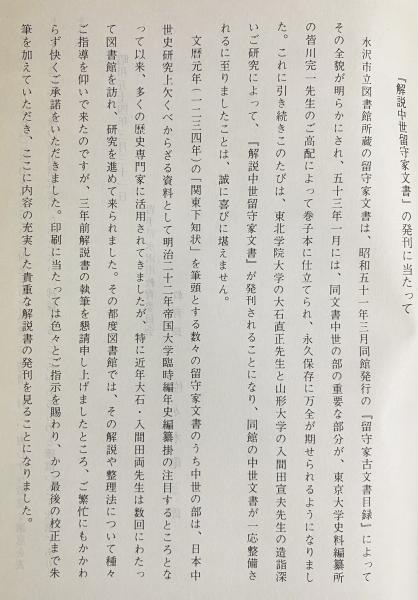 『解説中世留守家文書』の発刊に当たって
水沢市立図書館所蔵の留守家文書は、昭和五十一年三月同館発行の『留守家古文書目録』によって
その全貌が明らかにされ、五十三年一月には、同文書中世の部の重要な部分が、東京大学史料編纂所
の皆川完一先生のご高配によって巻子本に仕立てられ、永久保存に万全が期せられるようになりまし
た。これに引き続きこのたびは、東北学院大学の大石直正先生と山形大学の入間田宣夫先生の造詣深
いご研究によって、『解説中世留守家文書』が発刊されることになり、同館の中世文書が一応整備さ
れるに至りましたことは、誠に喜びに堪えません。
文暦元年（一二三四年）の「関東下知状」を筆頭とする数々の留守家文書のうち中世の部は、日本中
世史研究上欠くべからざる資料として明治二十二年帝国大学臨時編年史編纂掛の注目するところとな
って以来、多くの歴史専門家に活用されてきましたが、特に近年大石・入間田両先生は数回にわたっ
て図書館を訪れ、研究を進めて来られました。その都度図書館では、その解説や整理法について種々
ご指導を仰いで来たのですが、三年前解説書の執筆を懇請申し上げましたところ、ご繁忙にもかかわ
らず快くご承諾をいただきました。印刷に当たっては色々とご指示を賜わり、かつ最後の校正まで朱
筆を加えていただき、ここに内容の充実した貴重な解説書の発刊を見ることになりました。